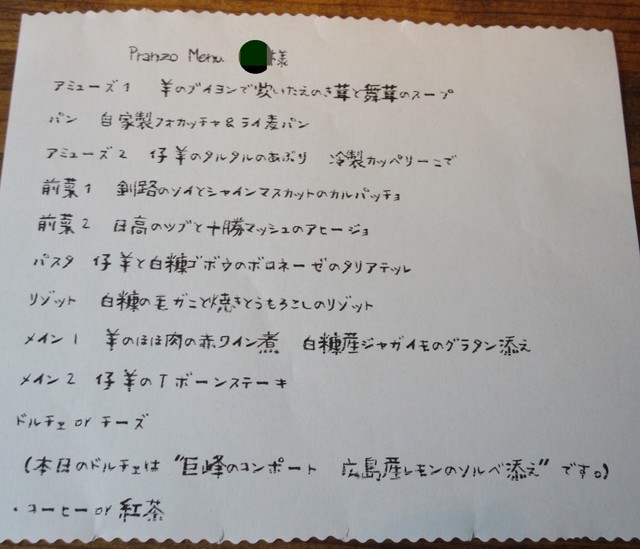 Pranzo Menu 様
アミューズ1 羊のブイヨンで炊いたえのき茸と舞茸のスープ
パン 自家製フォカッチャ&ライ麦パン
アミューズ2 仔羊のタルタルのあぶり 冷製カッペリーニで
前菜1 釧路のソイとシャインマスカットのカルパッチョ
前菜2 日高のツブと十勝マッシュのアヒージョ
パスタ 仔羊と白糠ゴボウのボロネーゼのタリアテッレ
リゾット 白糠の毛ガニと焼きとうもろこしのリゾット
メイン1 羊のほほ肉の赤ワイン煮 白糠産ジャガイモのグラタン添え
メイン2 仔羊のTボーンステーキ
ドルチェ or チーズ
(本日のドルチェは "巨峰のコンポート 広島産レモンのソルベ添え" です。)
・コーヒー or 紅茶